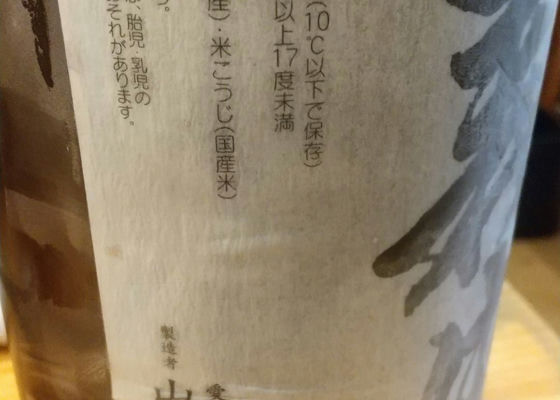 (10℃以下で保存)
以上17度未満
産)・米こうじ(国産米)
う。
は、胎児・乳児の
おそれがあります。
愛
製造者
山